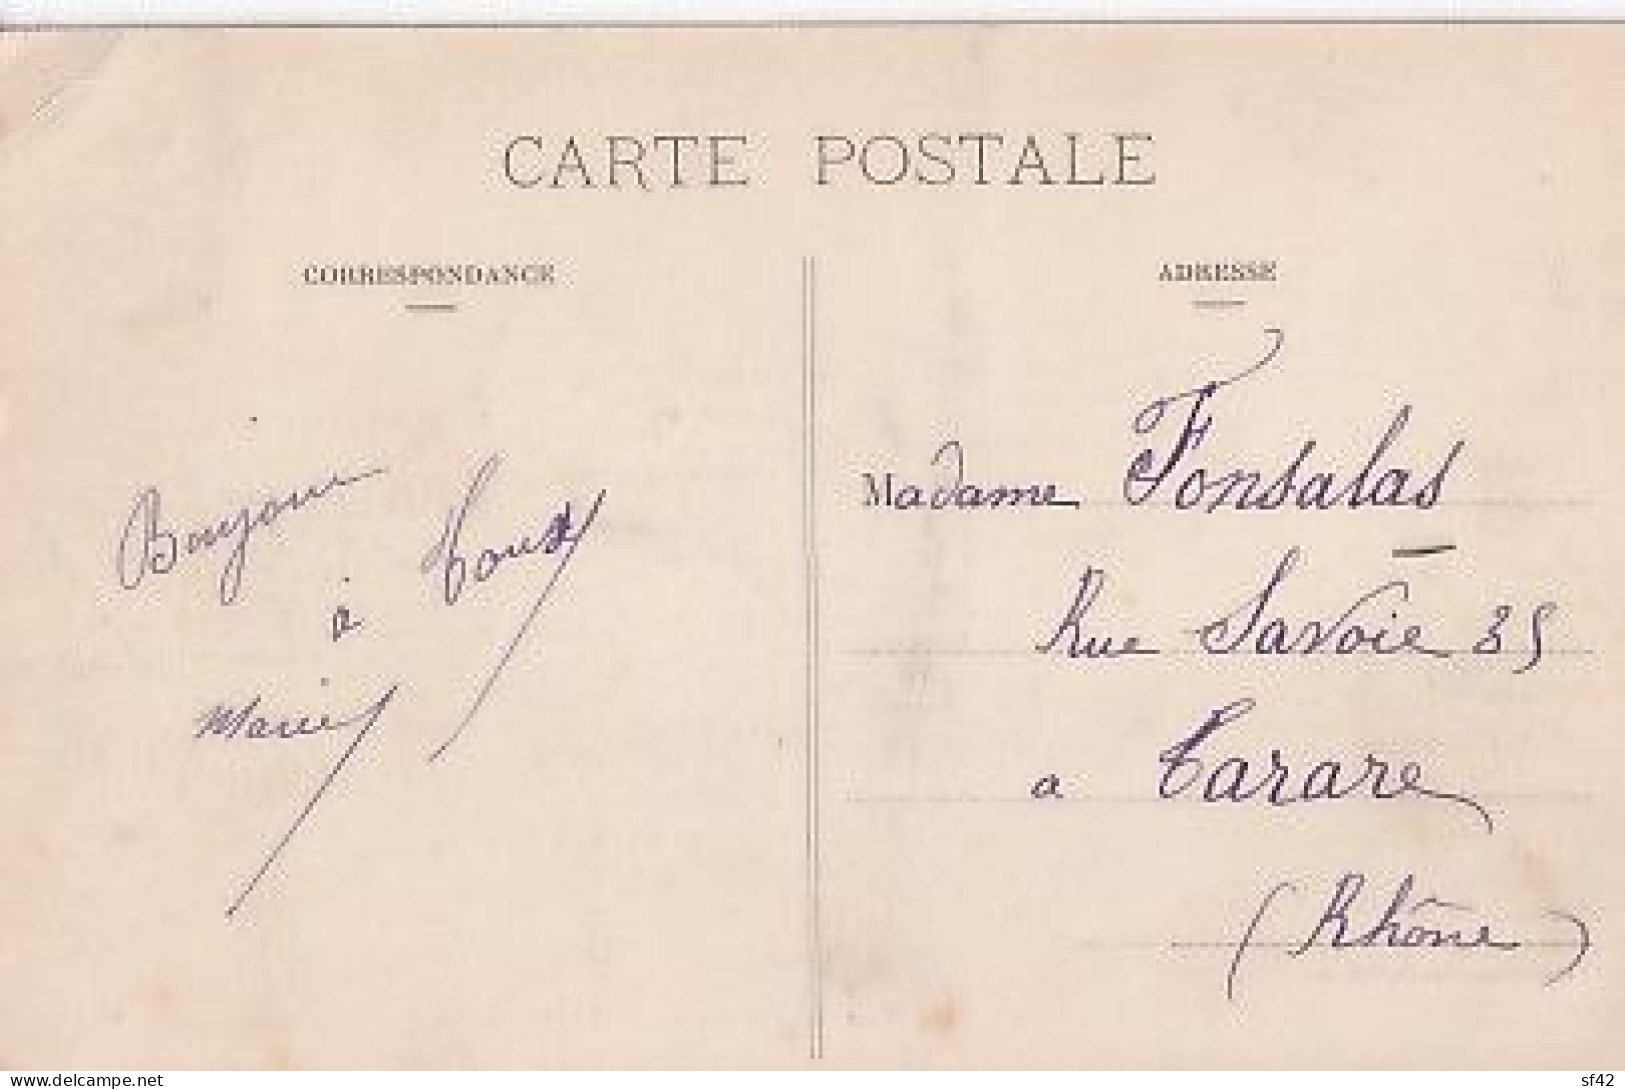 CARTE POSTALE
CORRESPONDANCE
ADRESSE
Bonjour à Tous
Marie
Madame Fonsalas
Rue Savoie 35
a Tarare
(Rhône)
www.delcampe.net
sf42